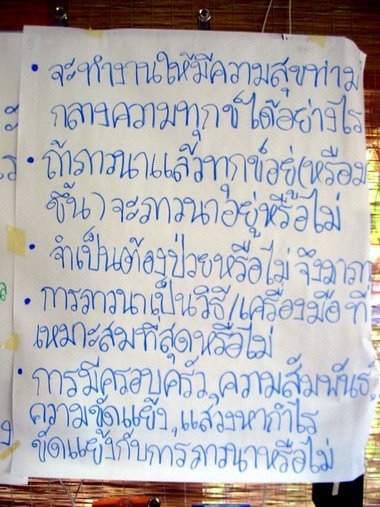 • จะทำงานให้มีความสุขท่าม
กลางความทุกข์ได้อย่างไร
• ถ้าภาวนาแล้วทุกข์อยู่(หรือม
ขึ้น) จะภาวนาอยู่หรือไม่
• จำเป็นต้องป่วยหรือไม่ จึงมาภา
• การภาวนาเป็นวิธี/เครื่องมือ ที่
เหมาะสมที่สุดหรือไม่
• การมีครอบครัว,ความสัมพันธ์,
ความขัดแย้ง,แสวงหากำไร
ขัดแย้งกับการภาวนาหรือไม่